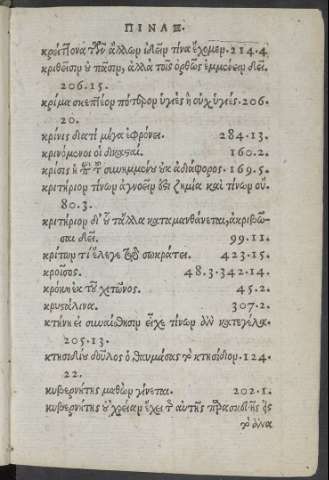 ΠΙΝΑΞ.
κρείττονα τῶν ἄλλων ἰδεῖν τίνα ἔχομεν. 214.4
κριθῶσιν οὐ πᾶσιν, ἀλλὰ τοῖς ὀρθῶς ἐμμένειν δεῖ.
206.15.
κρίμα σκεπτέον πότερον ὑγιὲς ἢ οὐχ ὑγιές. 206.
20.
κρίνεις διατί μέγα ἐφρόνει. 284.13.
κρινόμενοι οἱ δικασταί. 160.2.
κρίσις ἡ συνημμένου οὐκ ἀδιάφορος. 169.5.
κριτήριον τίνων ἀγνοεῖν δεῖ ζημία καὶ τίνων οὔ.
80.3.
κριτήριον δι' οὗ τἄλλα καταμανθάνεται, ἀκριβῶ-
σαι δεῖ. 99.11.
κρίτων τί ἔλεγε σωκράτει. 423.15.
κροῖσος. 48.3.342.14.
κρόκη ἐκ τοῦ χιτῶνος. 45.2.
κρυστάλινα. 307.2.
κτήνη εἰ συναίσθησιν εἶχε τίνων ἂν κατεγέλα.
205.13.
κτησιδίου δοῦλος ὁ θαυμάσας τὸ κτησίδιον. 124.
22.
κυβερνήτης μαθὼν γίνεται. 202.1.
κυβερνήτης οὐ χρείαν ἔχει τῆς αὐτῆς παρασκευῆς εἰς
τὸ ἀνα